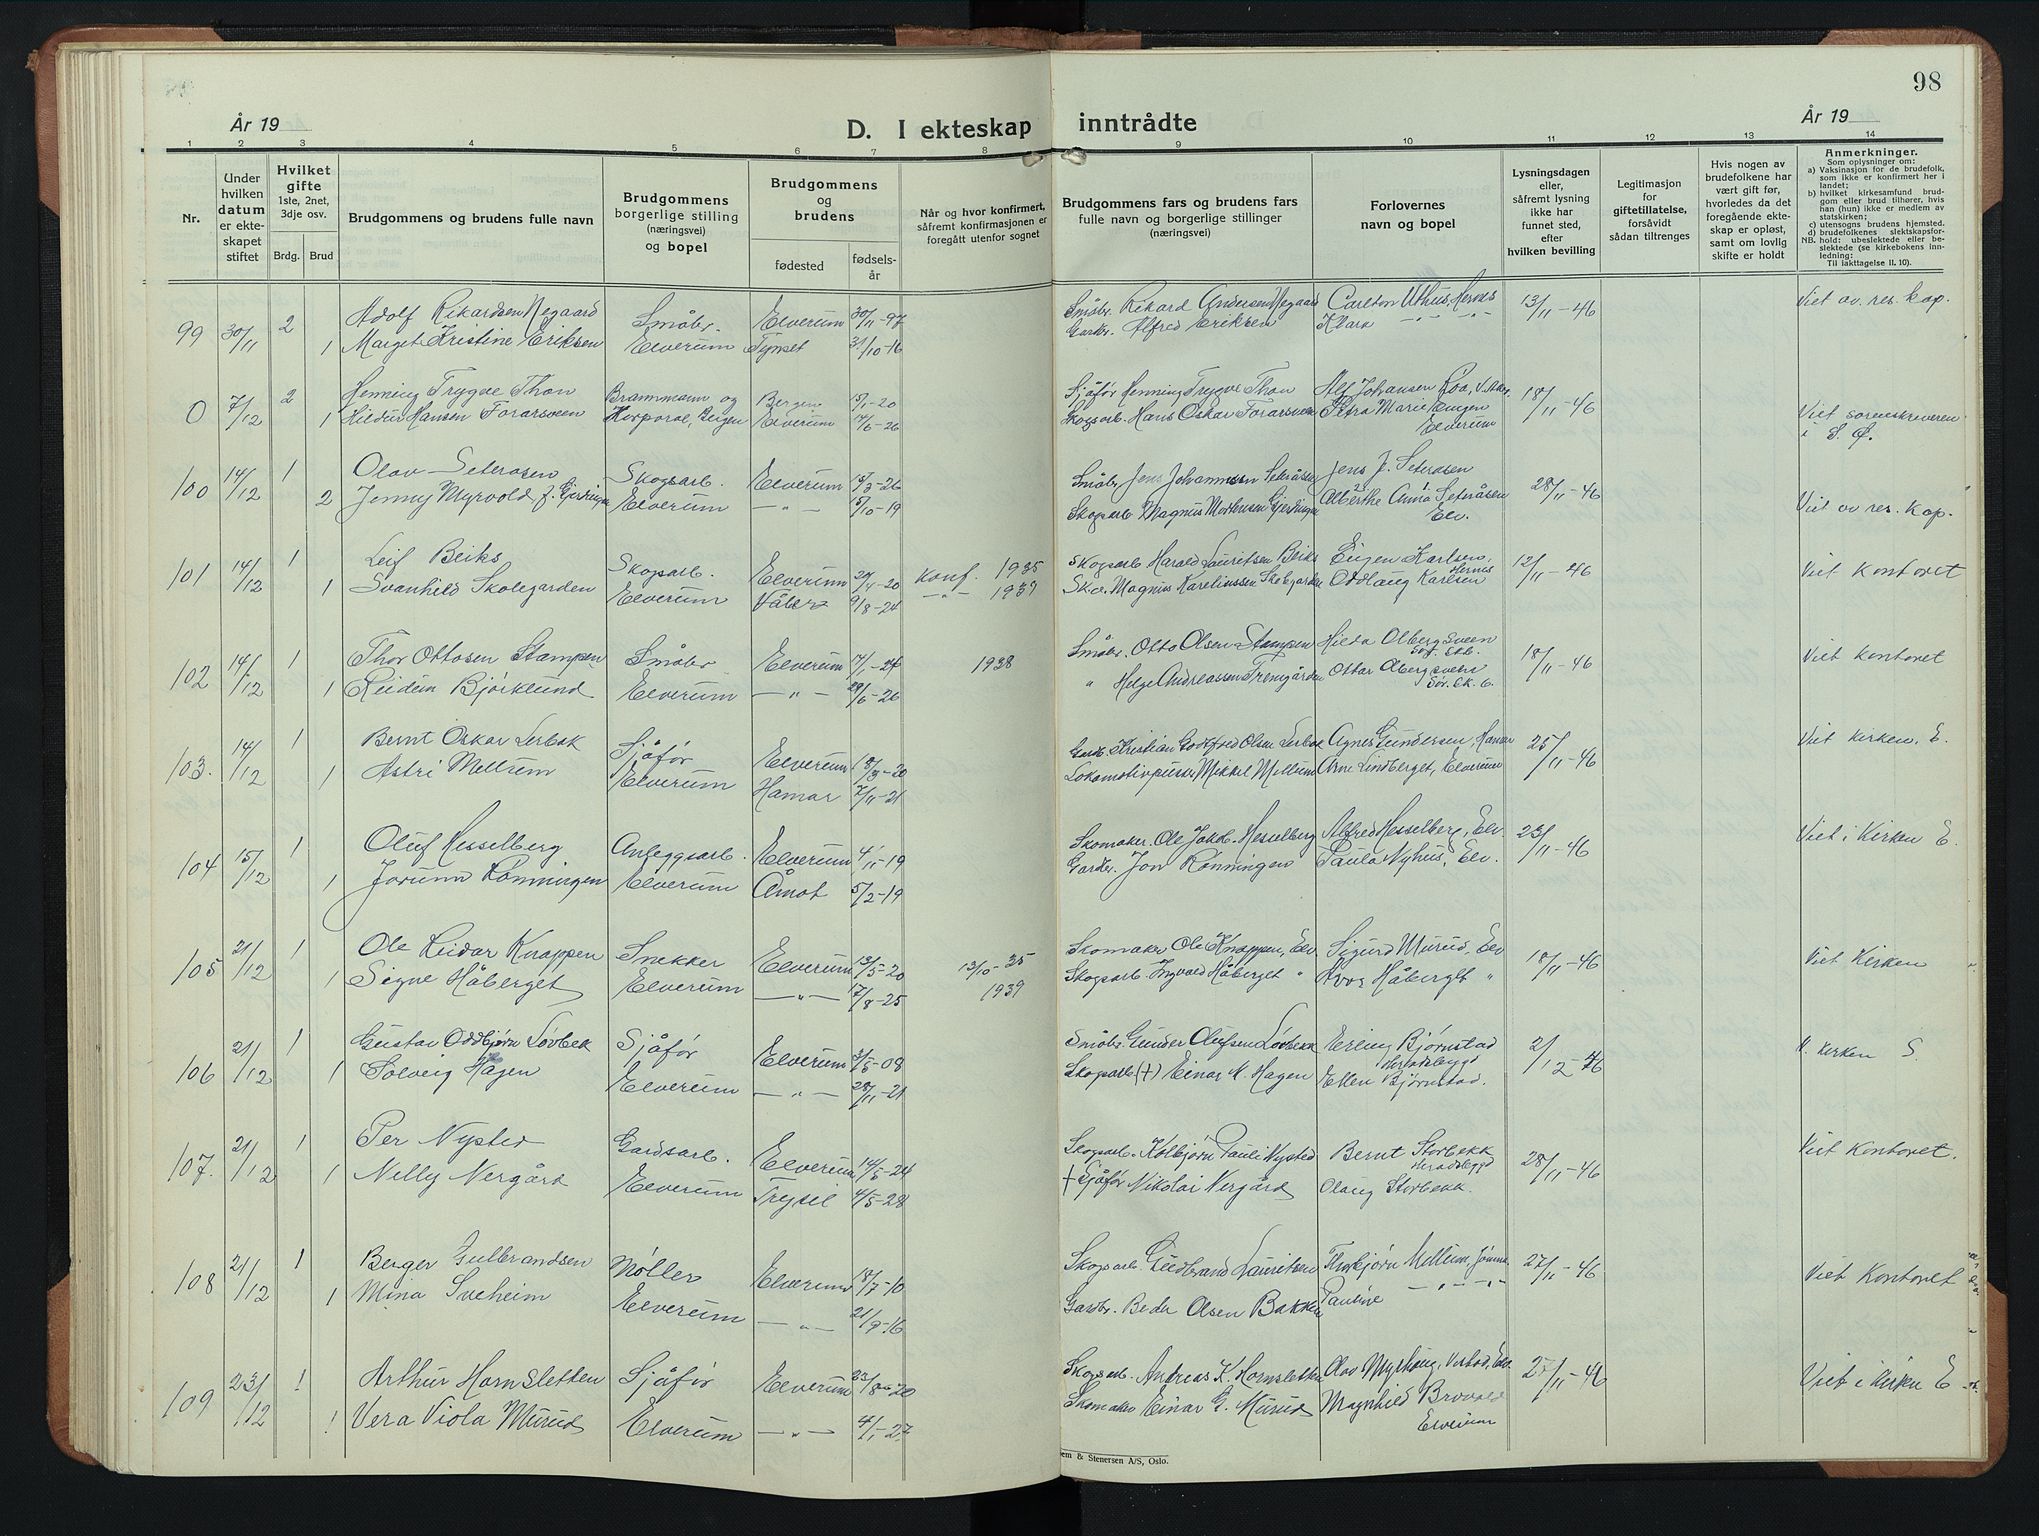 98
År 19
D. I ekteskap inntrådte
År 19
1 2 3 4 5 6 7 8 9 10 11 12 13 14
Nr.
Under hvilken datum er ekteskapet stiftet
Hvilket gifte 1ste, 2net, 3dje osv.
Brdg. Brud
Brudgommens og brudens fulle navn
Brudgommens borgerlige stilling (næringsvei) og bopel
Brudgommens og brudens
fødested
fødselsår
Når og hvor konfirmert, såfremt konfirmasjonen er foregått utenfor sognet
Brudgommens fars og brudens fars fulle navn og borgerlige stillinger (næringsvei)
Forlovernes navn og bopel
Lysningsdagen eller, såfremt lysning ikke har funnet sted, efter hvilken bevilling
Legitimasjon for giftetillatelse, forsåvidt sådan tiltrenges
Hvis nogen av brudefolkene har vært gift før, hvorledes da det foregående ekteskap er opløst, samt om lovlig skifte er holdt
Anmerkninger.
Som oplysninger om:
a) Vaksinasjon for de brudefolk, som ikke er konfirmert her i landet;
b) hvilket kirkesamfund brudgom eller brud tilhører, hvis han (hun) ikke er medlem av statskirken;
c) utensogns brudens hjemsted.
d) brudefolkenes slektskapsforhold: ubeslektede eller beslektede (se kirkebokens innledning:
NB.
Til iakttagelse II. 10).
99 30/11 2 Adolf Rikardsen Negaard Småbr. Elverum 30/11-97 Småbr. Rikard Andersen Negaard Carlton Uthus, Hernes 13/11-46 Viet av res. kap.
1 Marget Kristine Eriksen Elverum Tynset 31/10-16 Gardbr. Alfred Eriksen Klara -"- -"-
0 7/12 2 Henning Trygve Thon Brannmann og Bergen 5/1-20 Sjåfør Henning Trygve Thon Alf Johansen Roa, 18/11-46 Viet sorenskriveren
1 Hildur Hansen Forarsveen Korporal, Bergen Elverum 14/6-26 Skogsarb. Hans Oskar Forarsveen Petra Marie Engen i S. Ø.
Elverum
100 14/12 1 Olav Seteråsen Skogsarb. Elverum 13/3-26 Småbr. Jens Johannesen Seteråsen Jens J. Seteråsen 28/11-46
2 Jenny Myrvold, f. Gjerdingen Elverum -"- 5/10-19 Skogsarb. Magnus Mortensen Gjerdingen Alberthe Anna Seteråsen Viet av res. kap.
Elv.
101 14/12 1 Leif Beiks Skogsarb. Elverum 29/4-20 Konf. 1935 Skogsarb. Harald Lauritsen Beiks Eugen Karlsen, Hernes 12/11-46 Viet kontoret
1 Svanhild Skolegarden Elverum Våler 9/8-24 -"- 1939 Sk.a. Magnus Karelinssen Skolegarden Oddlaug Karlsen
102 14/12 1 Thor Ottosen Stampen Småbr. Elverum 17/1-24 1938 Småbr. Otto Olsen Stampen Hilda Olbergsveen 18/11-46 Viet kontoret
1 Reidun Bjørklund Elverum -"- 29/6-26 " Helge Andreassen Fremgården Ottar Olbergsveen
Sør. Sk. b.
103. 14/12 1 Bernt Oskar Lerbak Sjåfør Elverum 18/3-20 Gardb. Kristian Godtfred Olsen Lerbak Agnes Gundersen, Hamar 25/11-46 Viet kirken, E.
1 Astri Mellum Elverum Hamar 7/11-21 Lokomotivpusser Mikkel Mellum Arne Lindberget, Elverum
104 15/12 1 Oluf Hesselberg Anleggsarb. Elverum 4/11-19 Skomaker. Ole Jakob. Hesselberg Alfred Hesselberg, Elv. 23/11-46 Viet i Kirken E.
1 Jorunn Rønningen Elverum Åmot 5/2-19 Gardbr. Jon Rønningen Paula Nyhus, Elv.
105 21/12 1 Ole Reidar Knappen Snekker Elverum 13/5-20 13/10-35 Skomaker Ole Knappen, Elv Sigurd Murud, Elv 18/11-46 Viet Kirken
1 Signe Håberget Elverum -"- 17/8-25 1939 Skogsarb. Ingvald Håberget " Håberget "
106 21/12 1 Gustav Oddbjørn Løvbekk Sjåfør Elverum 3/5-08 Småbr. Gunder Olufsen Løvbekk Erling Bjørnstad 2/12-46 V. Kirken S.
Heradsbygd
1 Solveig Hagen Elverum -"- 28/11-21 Skogsarb (+) Einar M. Hagen Ellen Bjørnstad.
107. 21/12 1 Per Nysted Gardsarb. Elverum 14/5-24 Skogsarb. Kolbjørn Pauli Nysted Bernt Storbekk 28/11-46 Viet Kontoret.
Heradsbygd
1 Nelly Nergård Elverum Trysil 4/5-28 + Sjåfør Nikolai Nergård Olaug Storbekk.
108 21/12 1 Berger Gulbrandsen Møller Elverum 18/7-10 Skogsarb. Gudbrand Lauritsen Thorbjørn Mellum, Jømna 27/11-46 Viet Kontoret
1 Mina Sveheim Elverum -"- 21/9-16 Gardbr. Beder Olsen Bakken Pauline -"- -"-
109 23/12 1 Arthur Hornsletten Sjåfør Elverum 23/8-20 Skogsarb. Andreas K. Hornsletten Olav Myrhaug, 27/11-46 Viet i Kirken E
1 Vera Viola Murud Elverum -"- 4/1-27 Skomaker Einar G. Murud Magnhild
Elverum
em & Stenersen A/S, Oslo.